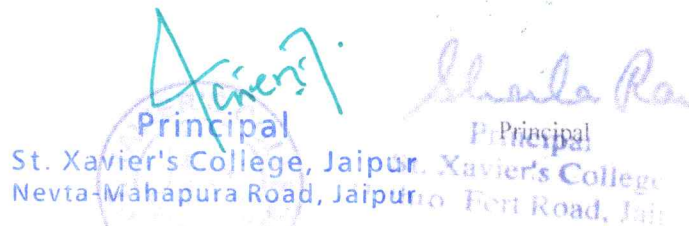 Sheila
Principal
St. Xavier's College, Jaipur
Nevta-Mahapura Road, Jaipur
Principal
Principal
Xavier's College
Fort Road,